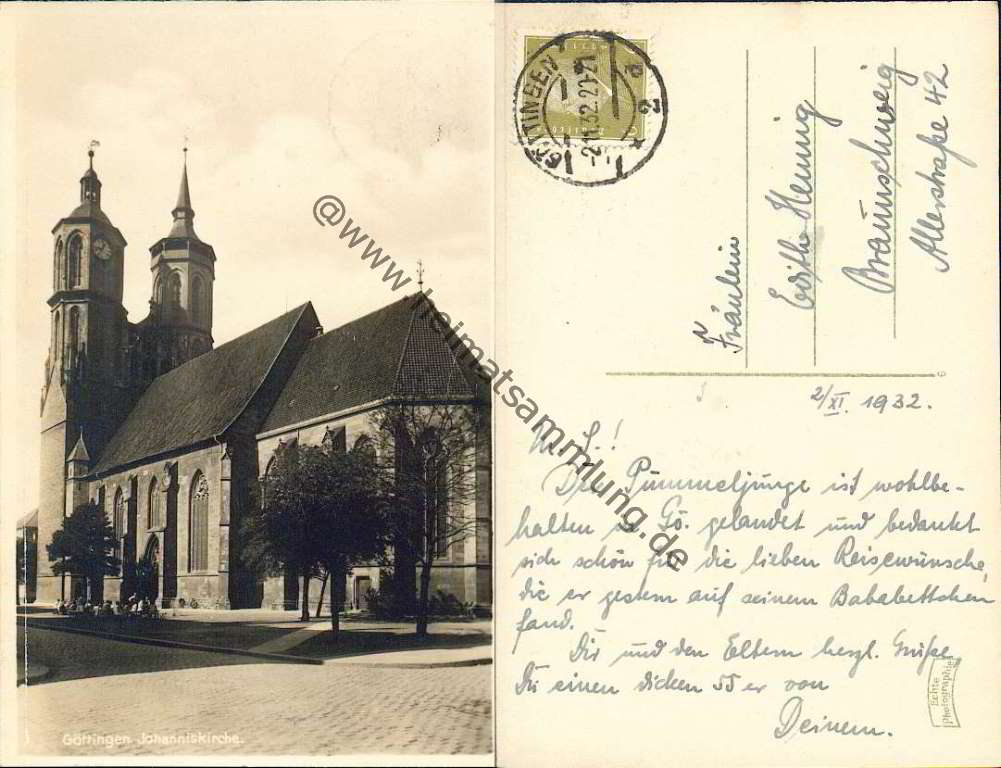 Göttingen. Johanniskirche.
@www.heimatsammlung.de
GÖTTINGEN
-2.11.32.22-21
Fräulein
Edith Henning
Braunschweig
Allerstraße 42
2/XI. 1932.
Der Pummeljunge ist wohlbe-
halten in Gö. gelandet und bedankt
sich schön für die lieben Reisewünsche,
die er gestern auf seinem Bababettchen
fand.
Dir und den Eltern herzl. Grüße
Dir einen dicken 55 er von
Deinem.
Echte
Photographie